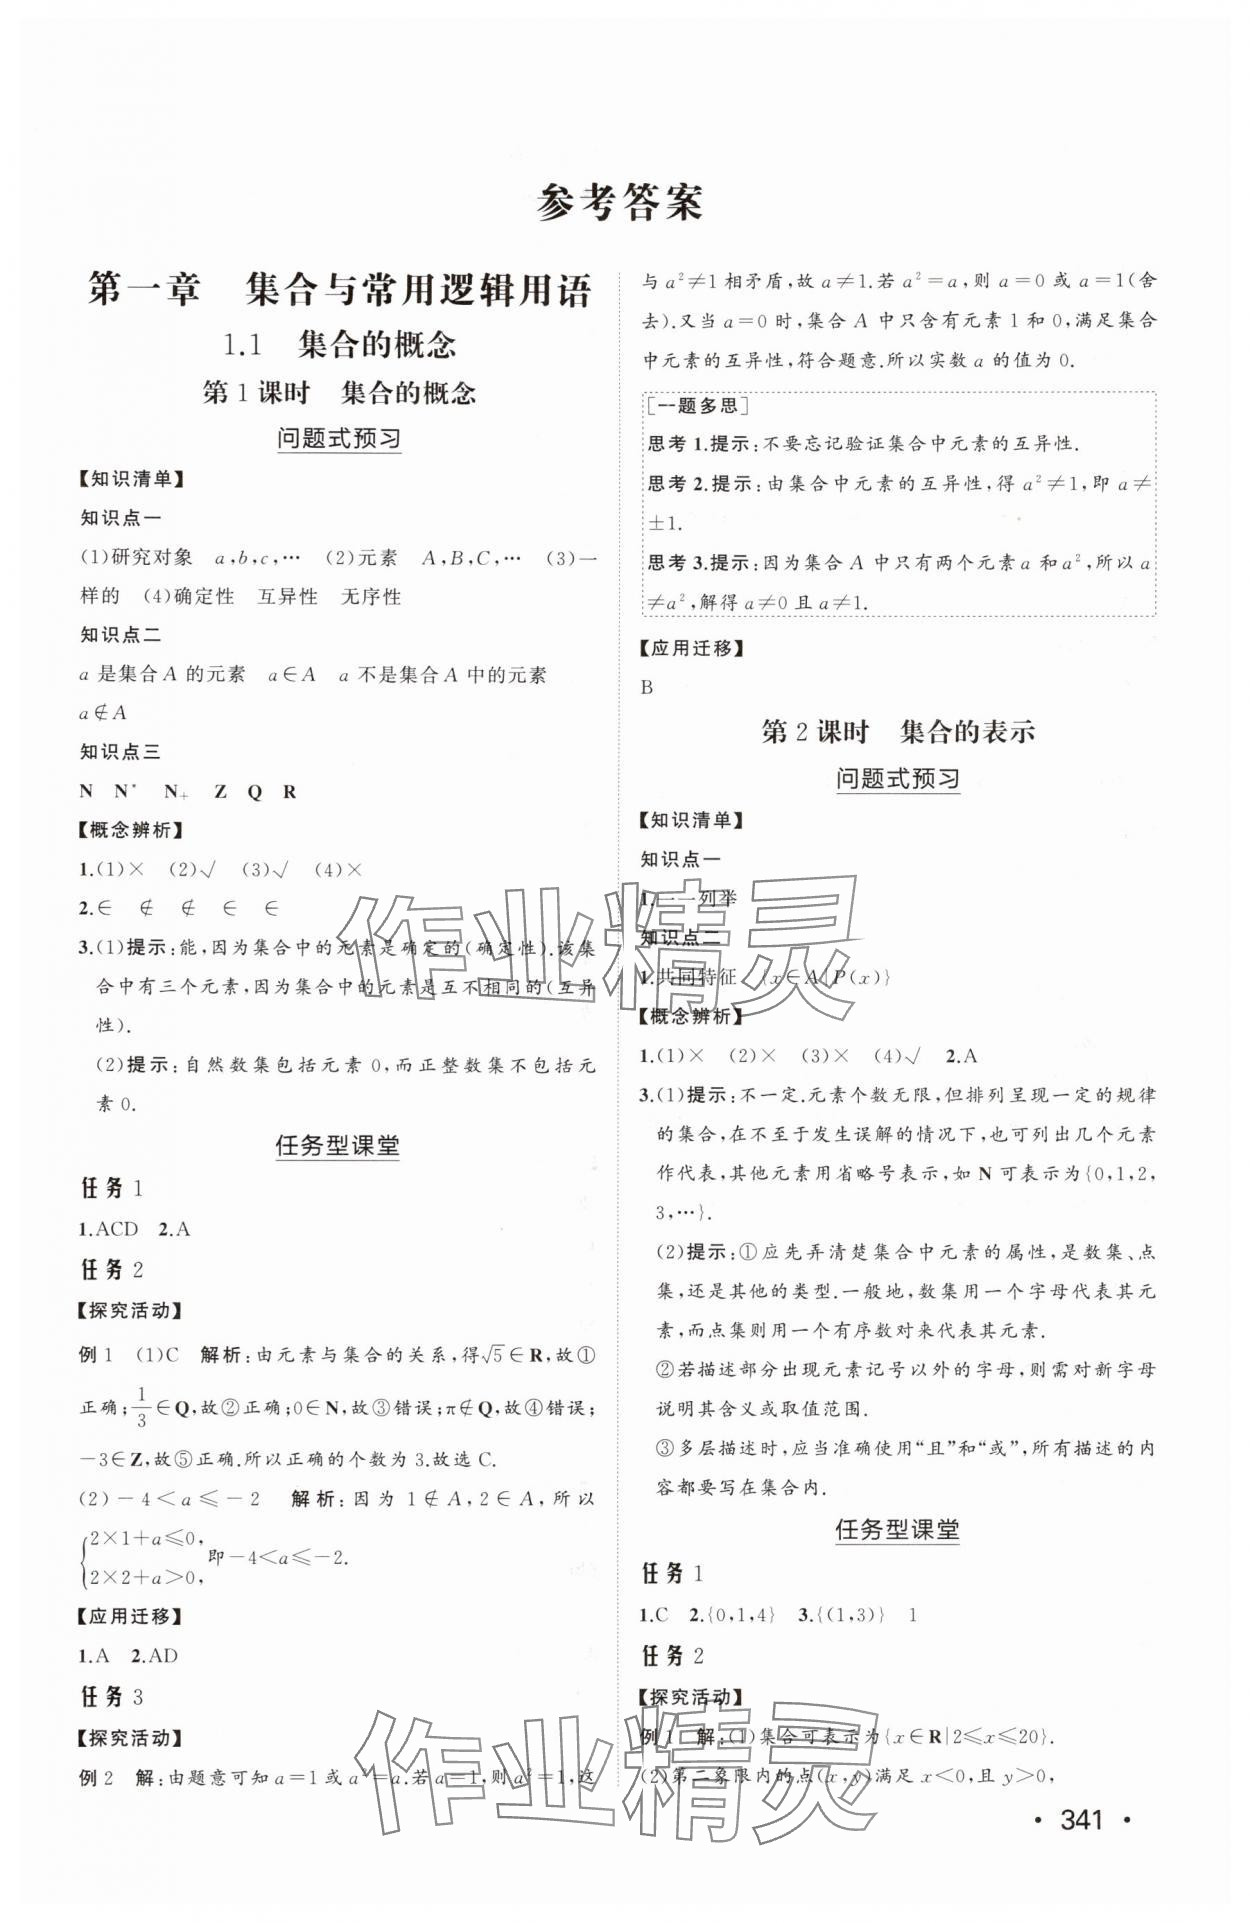 参考答案
第一章 集合与常用逻辑用语
1.1 集合的概念
第1课时 集合的概念
问题式预习
【知识清单】
知识点一
(1)研究对象 a,b,c,… (2)元素 A,B,C,… (3)一
样的 (4)确定性 互异性 无序性
知识点二
a是集合A的元素 a∈A a不是集合A中的元素
a∉A
知识点三
N N* N₊ Z Q R
【概念辨析】
1.(1)× (2)√ (3)√ (4)×
2.∈ ∉ ∉ ∈ ∈
3.(1)提示:能,因为集合中的元素是确定的(确定性).该集
合中有三个元素,因为集合中的元素是互不相同的(互异
性).
(2)提示:自然数集包括元素0,而正整数集不包括元
素0.
任务型课堂
任务1
1.ACD 2.A
任务2
【探究活动】
例1 (1)C 解析:由元素与集合的关系,得√5∈R,故①
正确;1/3∈Q,故②正确;0∈N,故③错误;π∉Q,故④错误;
−3∈Z,故⑤正确.所以正确的个数为3.故选C.
(2)−4<a≤−2 解析:因为1∉A,2∈A,所以
{2×1+a≤0,
2×2+a>0, 即−4<a≤−2.
【应用迁移】
1.A 2.AD
任务3
【探究活动】
例2 解:由题意可知a=1或a²=a.若a=1,则a²=1,这
与a²≠1相矛盾,故a≠1.若a²=a,则a=0或a=1(舍
去).又当a=0时,集合A中只含有元素1和0,满足集合
中元素的互异性,符合题意.所以实数a的值为0.
[一题多思]
思考1.提示:不要忘记验证集合中元素的互异性.
思考2.提示:由集合中元素的互异性,得a²≠1,即a≠
±1.
思考3.提示:因为集合A中只有两个元素a和a²,所以a
≠a²,解得a≠0且a≠1.
【应用迁移】
B
第2课时 集合的表示
问题式预习
【知识清单】
知识点一
1.一一列举
知识点二
1.共同特征 {x∈A|P(x)}
【概念辨析】
1.(1)× (2)× (3)× (4)√ 2.A
3.(1)提示:不一定.元素个数无限,但排列呈现一定的规律
的集合,在不至于发生误解的情况下,也可列出几个元素
作代表,其他元素用省略号表示,如N可表示为{0,1,2,
3,…}.
(2)提示:①应先弄清楚集合中元素的属性,是数集、点
集,还是其他的类型.一般地,数集用一个字母代表其元
素,而点集则用一个有序数对来代表其元素.
②若描述部分出现元素记号以外的字母,则需对新字母
说明其含义或取值范围.
③多层描述时,应当准确使用“且”和“或”,所有描述的内
容都要写在集合内.
任务型课堂
任务1
1.C 2.{0,1,4} 3.{(1,3)} 1
任务2
【探究活动】
例1 解:(1)集合可表示为{x∈R|2≤x≤20}.
(2)第二象限内的点(x,y)满足x<0,且y>0,
· 341 ·
作业精灵
作业精灵